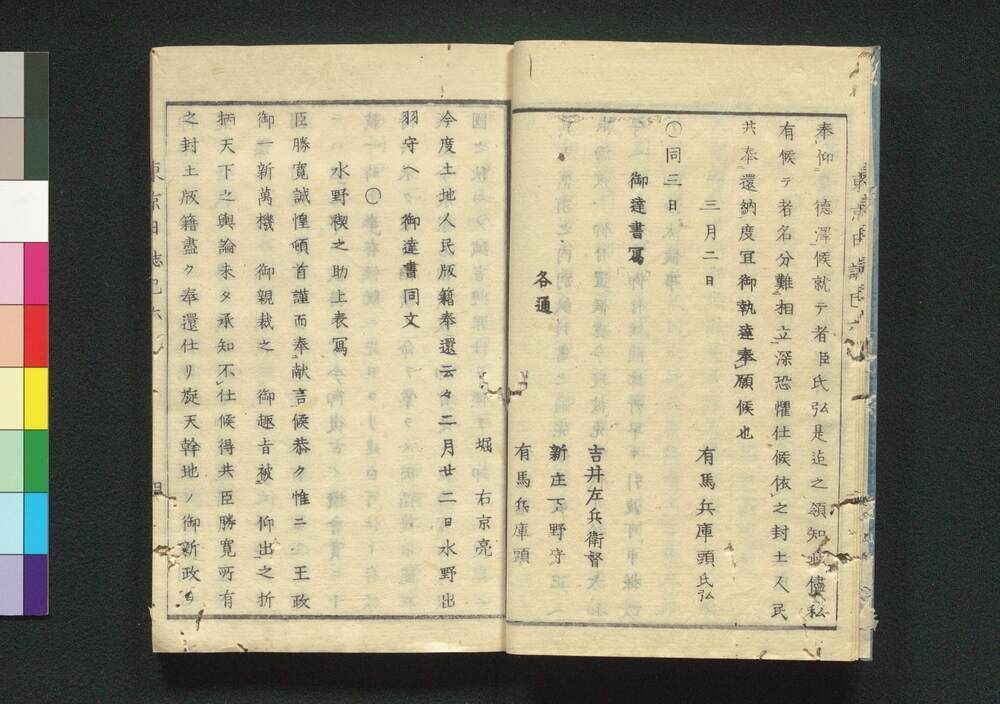 奉仰 德澤候就テ者臣氏弘是迄之領知其儘私
有候テ者名分難相立深恐懼仕候依之封土人民
共奉還納度宜御執達奉願候也
三月二日
有馬兵庫頭氏弘
○同三日
御達書寫
各通
吉井左兵衛督
新庄下野守
有馬兵庫頭
堀右京亮
今度土地人民版籍奉還云々二月廿二日水野出
羽守ヘ 御達書同文
○
水野稷之助上表寫
臣勝寛誠惶頓首謹而奉献言候恭ク惟ニ王政
御一新萬機 御親裁之 御趣旨被 仰出之折
柄天下之輿論未タ承知不仕候得共臣勝寛所有
之封土版籍盡ク奉還仕リ旋天幹地ノ御新政ヲ
東京日誌己六